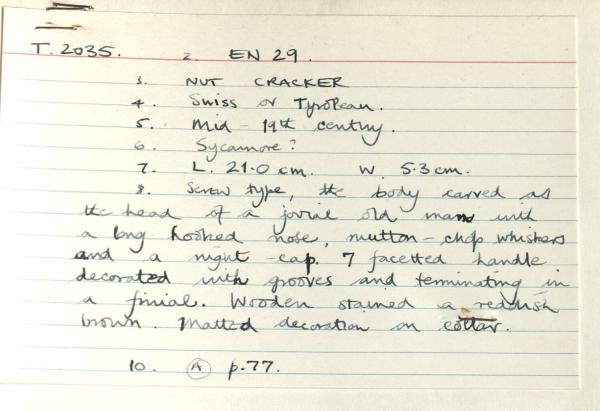 T. 2035. 2. EN 29.
3. NUT CRACKER
4. Swiss or Tyrolean.
5. Mid - 19th century.
6. Sycamore?
7. L. 21.0 cm. W. 5.3 cm.
8. Screw type, the body carved as
the head of a jovial old man with
a long hooked nose, mutton-chop whiskers
and a night-cap. 7 facetted handle
decorated with grooves and terminating in
a finial. Wooden stained a reddish
brown. Matted decoration on collar.
10. A p.77.